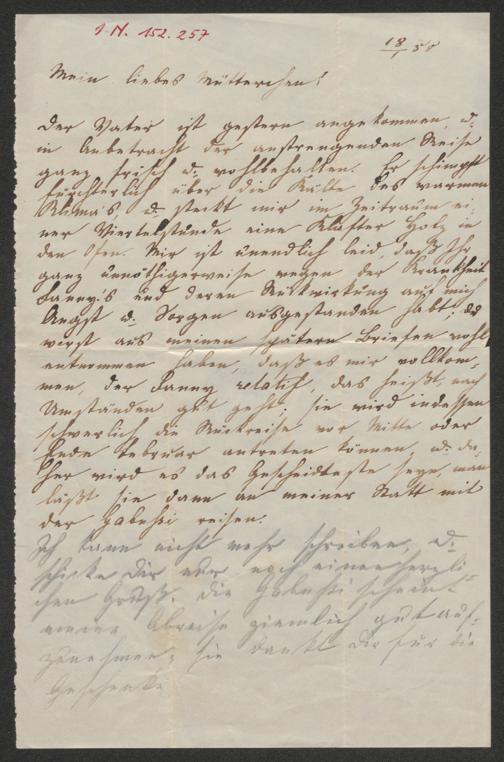 J. N. 152.257
18/1 58
Mein liebes Mütterchen!
Der Vater ist gestern angekommen, u.
in Anbetracht der anstrengenden Reise
ganz frisch u. wohlbehalten. Er schimpft
fürchterlich über die Kälte des warmen
Klima's, u. steckt mir im Zeitraum ei-
ner Viertelstunde eine Klafter Holz in
den Ofen. Mir ist unendlich leid, daß Ihr
ganz unnöthigerweise wegen der Krankheit
Fanny's und deren Rückwirkung auf mich
Angst u. Sorgen ausgestanden habt; du
wirst aus meinen spätern Briefen wohl
entnommen haben, daß es mir vollkom-
men, der Fanny relatif, das heißt, nach
Umständen gut geht; sie wird indessen
schwerlich die Rückreise vor Mitte oder
Ende Februar antreten können, u. da-
her wird es das Gescheidteste seyn, man
läßt sie dann an meiner Statt mit
der reisen.
Ich kann nicht mehr schreiben, u.
schicke Dir nur noch einen herzli-
chen Gruß. Die scheint
meine Abreise ziemlich gut auf-
zunehmen; sie dankt Dir für die
Geschenke